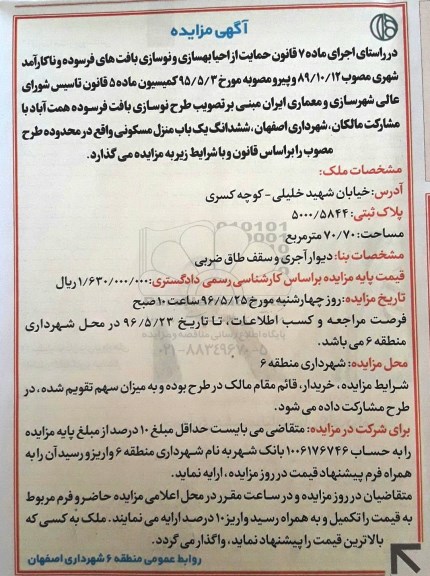 آگهی مزایده
در راستای اجرای ماده ۷ قانون حمایت از احیا بهسازی و نوسازی بافت های فرسوده و ناکارآمد
شهری مصوب ۸۹/۱۰/۱۲ و پیرو مصوبه مورخ ۹۵/۵/۳ کمیسیون ماده ۵ قانون تاسیس شورای
عالی شهرسازی و معماری ایران مبنی بر تصویب طرح نوسازی بافت فرسوده همت آباد با
مشارکت مالکان، شهرداری اصفهان، ششدانگ یک باب منزل مسکونی واقع در محدوده طرح
مصوب را براساس قانون و با شرایط زیر به مزایده می گذارد.
مشخصات ملک:
آدرس: خیابان شهید خلیلی - کوچه کسری
پلاک ثبتی: ۵۰۰۰/۵۸۴۴
مساحت: ۷۰/۷۰ مترمربع
مشخصات بنا: دیوار آجری و سقف طاق ضربی
قیمت پایه مزایده براساس کارشناسی رسمی دادگستری: ۱/۶۳۰/۰۰۰/۰۰۰ ریال
تاریخ مزایده: روز چهارشنبه مورخ ۹۶/۵/۲۵ ساعت ۱۰ صبح
فرصت مراجعه و کسب اطلاعات، تا تاریخ ۹۶/۵/۲۳ در محل شهرداری
منطقه ۶ می باشد.
محل مزایده: شهرداری منطقه ۶
شرایط مزایده، خریدار، قائم مقام مالک در طرح بوده و به میزان سهم تقویم شده، در
طرح مشارکت داده می شود.
برای شرکت در مزایده: متقاضی می بایست حداقل مبلغ ۱۰ درصد از مبلغ پایه مزایده
را به حساب ۱۰۰۶۱۷۶۷۴۶ بانک شهر به نام شهرداری منطقه ۶ واریز و رسید آن را به
همراه فرم پیشنهاد قیمت در روز مزایده، ارایه نماید.
متقاضیان در روز مزایده و در ساعت مقرر در محل اعلامی مزایده حاضر و فرم مربوط
به قیمت را تکمیل و به همراه رسید واریز ۱۰ درصد ارایه می نمایند. ملک به کسی که
بالاترین قیمت را پیشنهاد نماید، واگذار می گردد.
روابط عمومی منطقه ۶ شهرداری اصفهان